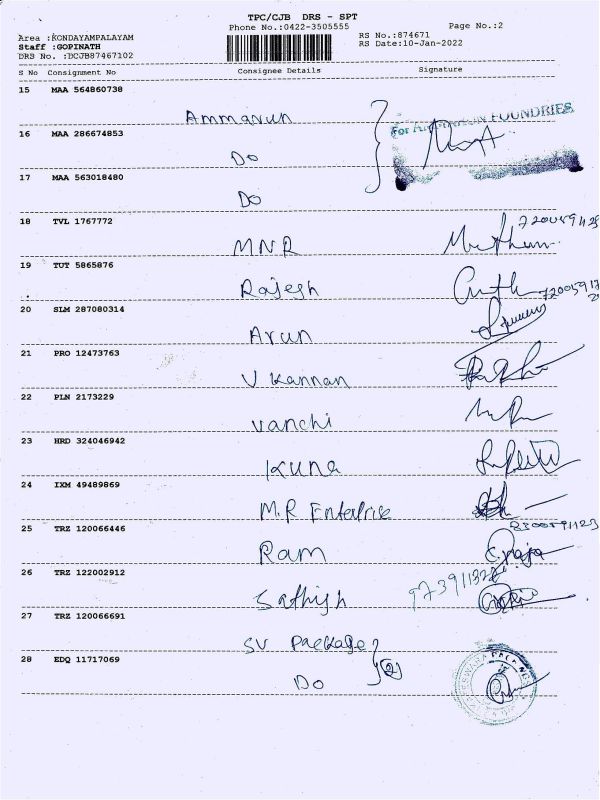 TPC/CJB DRS - SPT
Phone No.:0422-3505555
Page No.:2
Area :KONDAYAMPALAYAM
Staff :GOPINATH
DRS No. :DCJB87467102
RS No.:874671
RS Date:10-Jan-2022
S No Consignment No Consignee Details Signature
15 MAA 564860738
Ammarun
For FOUNDRIES
16 MAA 286674853
Do
17 MAA 563018480
Do
18 TVL 1767772
MNR
19 TUT 5865876
Rajesh
20 SLM 287080314
Arun
21 PRO 12473763
V Kannan
22 PLN 2173229
Vanchi
23 HRD 324046942
Kuna
24 IXM 49489869
M.R Enterprise
25 TRZ 120066446
Ram
C. Raja
26 TRZ 122002912
Sathish
27 TRZ 120066691
SV Package
28 EDQ 11717069
Do
(2)